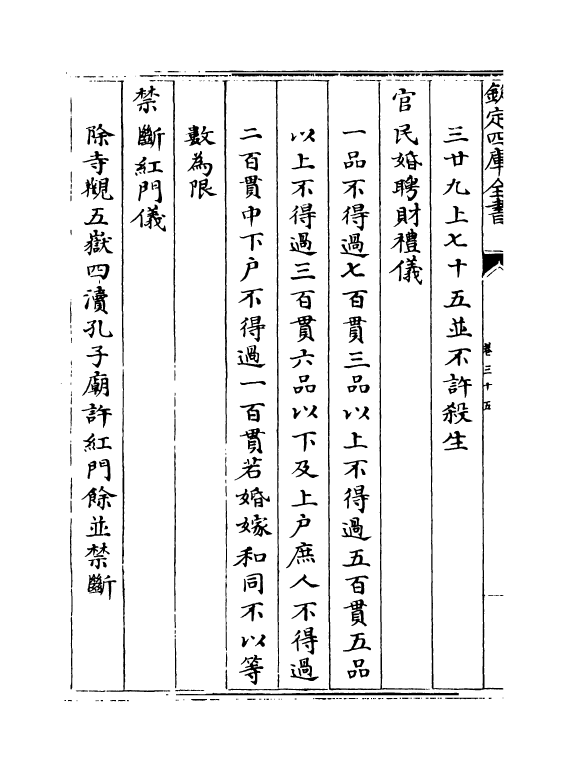 欽定四庫全書
卷三十五
三廿九上七十五並不許殺生
官民婚聘財禮儀
一品不得過七百貫三品以上不得過五百貫五品
以上不得過三百貫六品以下及上户庶人不得過
二百貫中下户不得過一百貫若婚嫁和同不以等
數為限
禁斷紅門儀
除寺觀五嶽四瀆孔子廟許紅門餘並禁斷